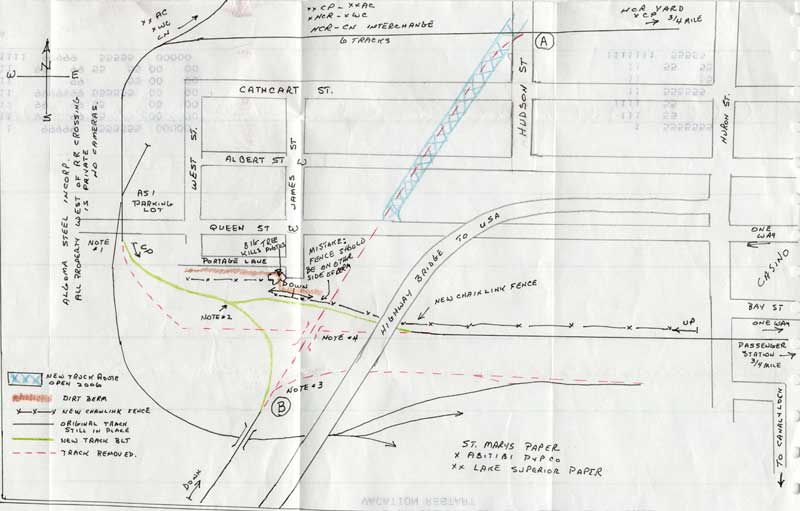 xx AC
x WC
CN
xx CP - xx AC
x NCR - x WC
NCR - CN INTERCHANGE
6 TRACKS
NCR YARD
x CP
3/4 MILE
A
N
W
E
S
CATHCART ST.
HUDSON ST
HURON ST.
WEST ST.
ALBERT ST
JAMES ST
ALGOMA STEEL INCORP.
ALL PROPERTY WEST OF RR CROSSING
IS PRIVATE
NO CAMERAS.
ASI
PARKING
LOT
QUEEN ST
NOTE
#1
BIG TREE
KILLS PHOTOS
PORTAGE LANE
MISTAKE:
FENCE SHOULD
BE ON OTHER
SIDE OF BERM
DOWN
HIGHWAY BRIDGE TO USA
ONE
WAY
CASINO
NEW CHAIN LINK FENCE
BAY ST
UP
ONE WAY
NOTE #2
NOTE #4
PASSENGER
STATION
3/4 MILE
NEW TRUCK ROUTE
OPEN 2006
NOTE #3
B
DIRT BERM
NEW CHAINLINK FENCE
ORIGINAL TRACK
STILL IN PLACE
NEW TRACK BLT
TRACK REMOVED.
DOWN
ST. MARYS PAPER
x ABITIBI P&P CO
xx LAKE SUPERIOR PAPER
VACATION RESTART